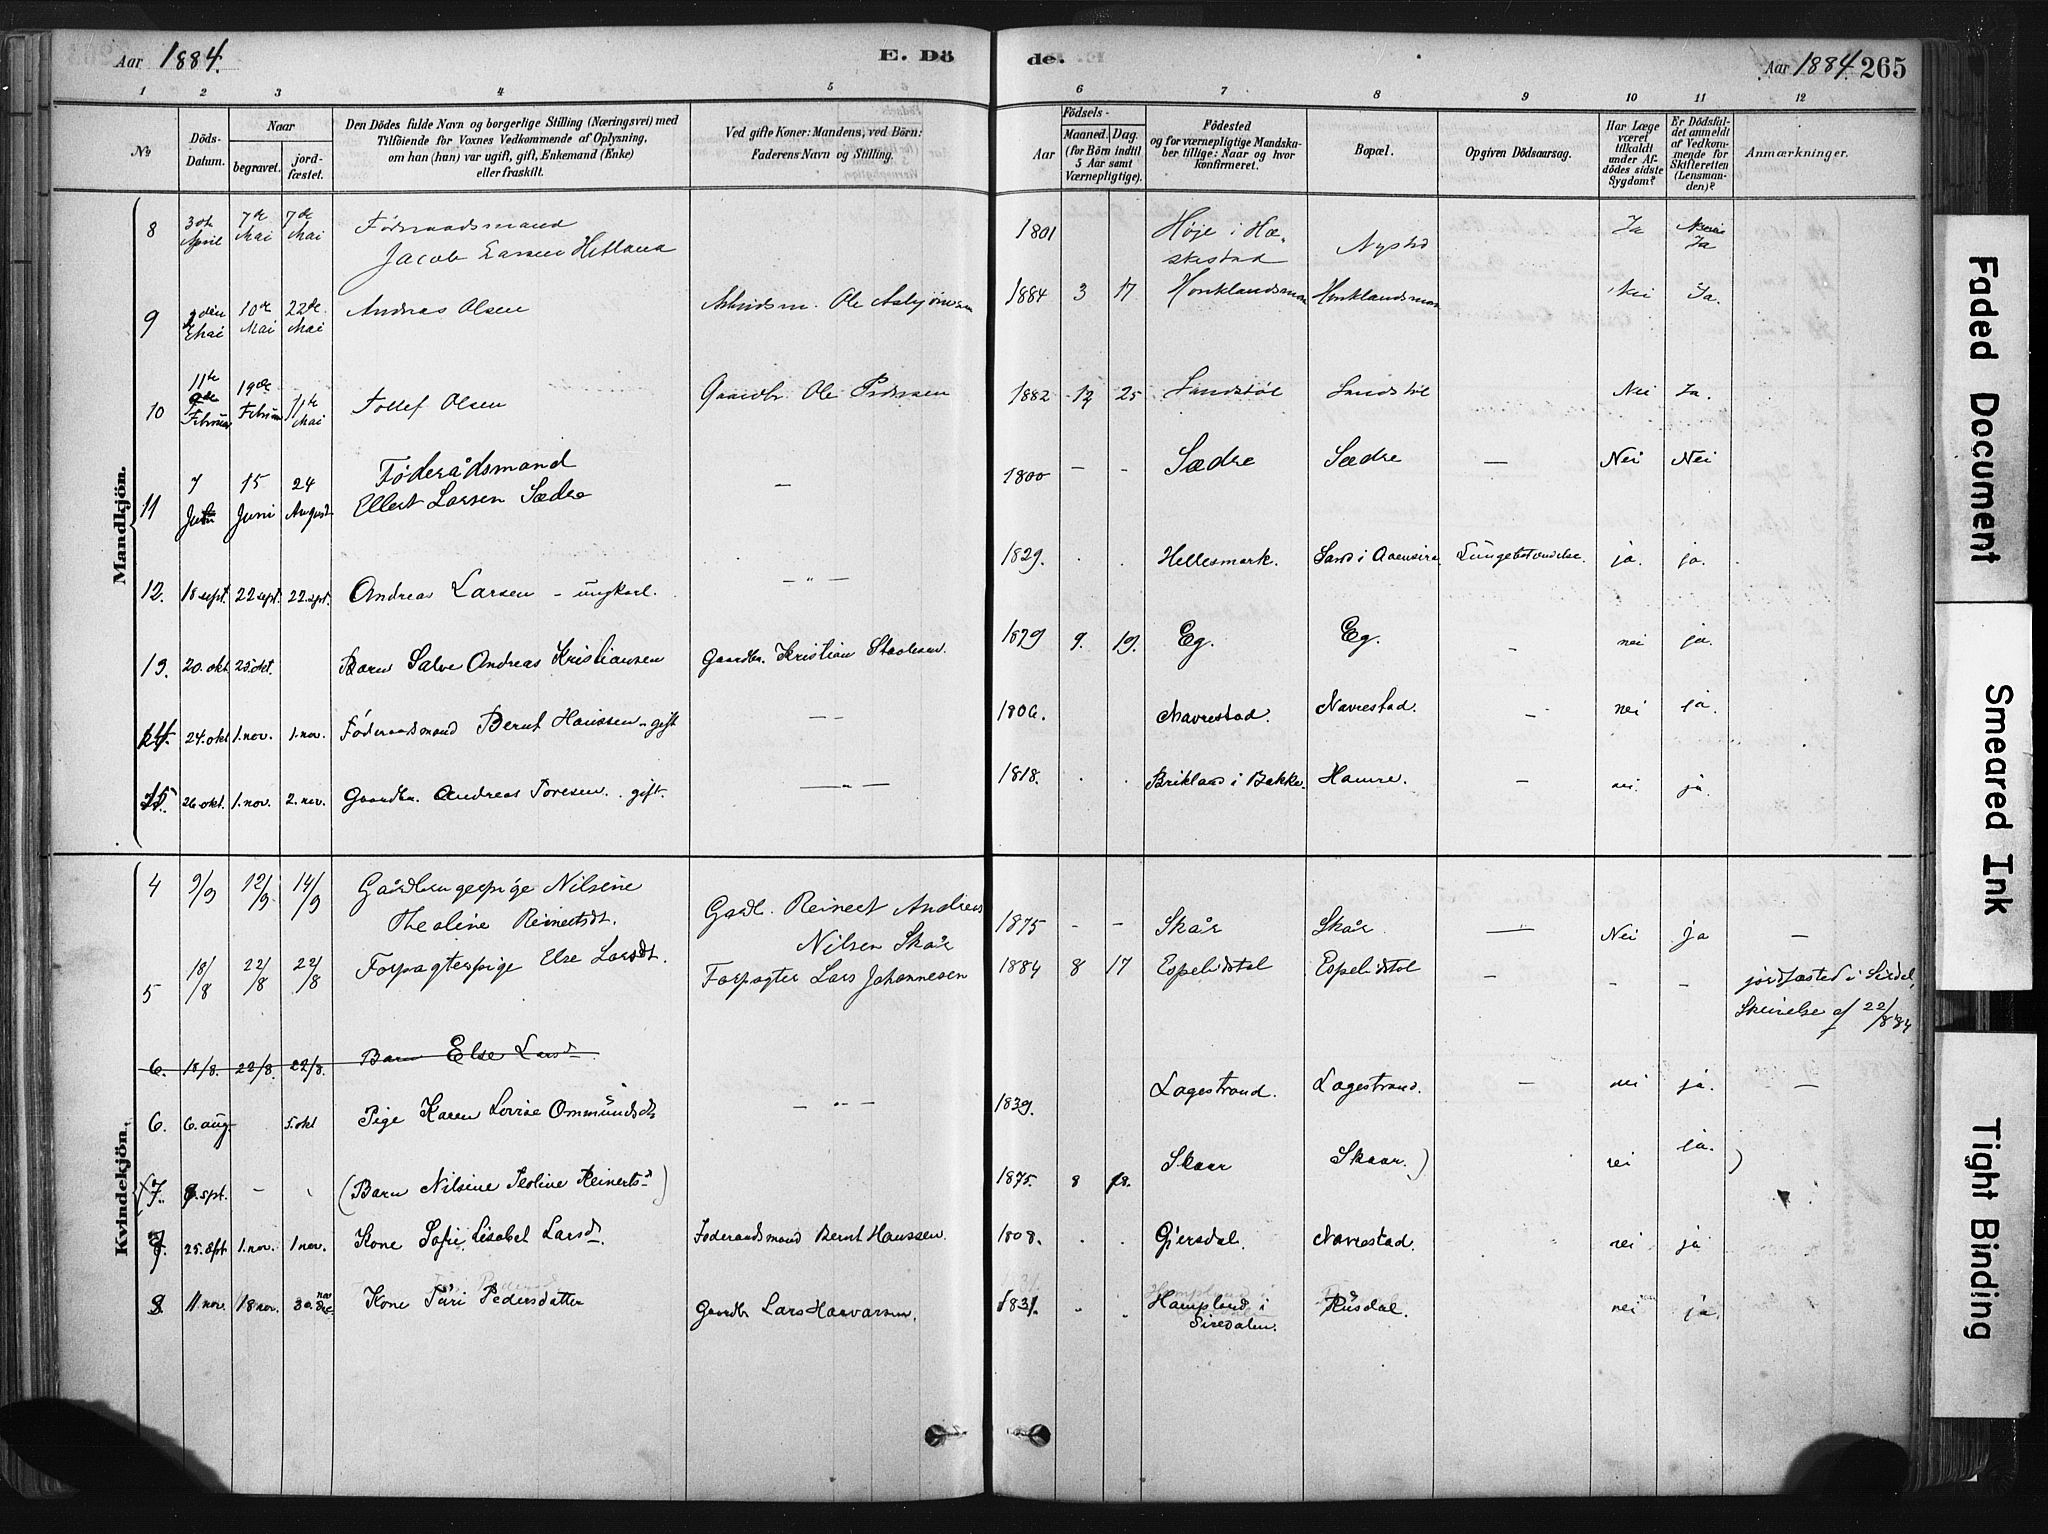 Aar 1884.
E. Dö
de.
Aar 1884. 265
1 2 3 4 5 6 7 8 9 10 11 12
No
Döds-Datum.
Naar
begravet.
jordfæstet.
Den Dödes fulde Navn og borgerlige Stilling (Næringsvei) med
Tilföiende for Voxnes Vedkommende af Oplysning,
om han (hun) var ugift, gift, Enkemand (Enke)
eller fraskilt.
Ved gifte Koner: Mandens, ved Börn:
Faderens Navn og Stilling.
Födsels-
Aar
Maaned. Dag.
(for Börn indtil
5 Aar samt
Værnepligtige).
Födested
og for værnepligtige Mandskaber tillige: Naar og hvor
konfirmeret.
Bopæl.
Opgiven Dödsaarsag.
Har Læge
været
tilkaldt
under Afdödes sidste
Sygdom?
Er Dödsfaldet anmeldt
af Vedkommende for
Skifteretten
(Lensmanden)?
Anmærkninger.
Mandkjön.
8 April 7de Mai 7de Mai Jacob Larsen Hetland 1801 Høje i Hæskestad Nystad Ja Ja
9 Mai 10de Mai 22de Mai Andreas Olsen Ole Asbjørnsen 1884 3 17 Nei Ja.
10 11te Februar 19de Februar 11te Mai Tollef Olsen Gaardbr. Ole Pedersen 1882 12 25 Sandstøl Sandstøl Nei Ja.
11 7 15 Juni 24 August Føderådsmand
Ellert Larsen Sædre — 1800 — - Sædre Sædre — Nei Nei
12. 18 sept. 22 sept. 22. spt. Andreas Larsen - ungkarl. — " — 1829. . . Hellesmark. Sand i Aaensire Lungebetændelse ja. ja.
13. 20. okt. 25. okt. Barn Salve Andreas Kristiansen Gaardbr. Kristian Staalesen. 1879 9. 19. Eg. Eg. nei ja.
14. 24. okt. 1. nov. 1. nov. Føderaadsmand Bernt Hanssen - gift — — 1806. Navrestad. Navrestad. — nei ja.
15. 26 okt. 1. nov. 2. nov. Gaardbr. Andreas Toresen . gift. — " — 1818. . . Brikland i Bakke. Hamre. — nei. ja.
Kvindekjön.
4 9/9 12/9 14/9 Gårdbrugerpige Nilsine
Theoline Reinertsdt. Gårdb. Reinert Andreas
Nilsen Skår 1875 - - Skår Skår — Nei Ja —
5 18/8 22/8 22/8 Forpagterpige Else Larsdt. Forpagter Lars Johannesen 1884 8 17 Espelidstøl Espelidstøl — - - jordfæsted i Sirdal,
Skrivelse af 22/8 84
6. 18/8. 22/8. 22/8. Barn Else Larsd.
6. 6. aug. 5. okt Pige Karen Lovise Ommundsdt. — " — 1839. Lagestrand. Lagestrand. — nei ja. —
(7. 9. spt. - (Barn Nilsine Teoline Reinertsd) 1875. 8 18. Skaar Skaar.) nei ja. )
7. 25. okt. 1. nov. 1 nov. Kone Sofie Lisabet Larsd. Føderaadsmand Bernt Hanssen. 1808. . . Gjersdal. Navrestad. nei ja
8 11. nov. 18 nov. 30. nov Kone Turi Pedersdatter Gaardbr Lars Haavarsen. 1831. . . Hompland i
Siredalen. Rusdal. nei ja.
Faded Document
Smeared Ink
Tight Binding